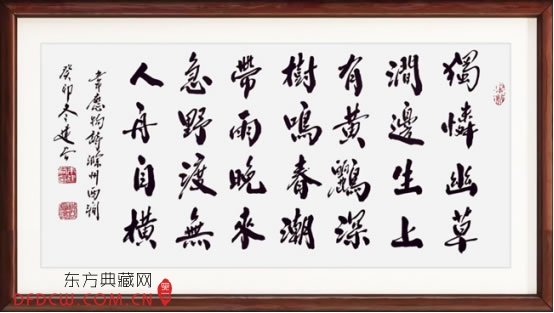 獨憐幽草
澗邊生上
有黃鸝深
樹鳴春潮
帶雨晚來
急野渡無
人舟自橫
韋應物詩滁州西澗
癸卯冬建
东方典藏网
DFDCW.COM.CN